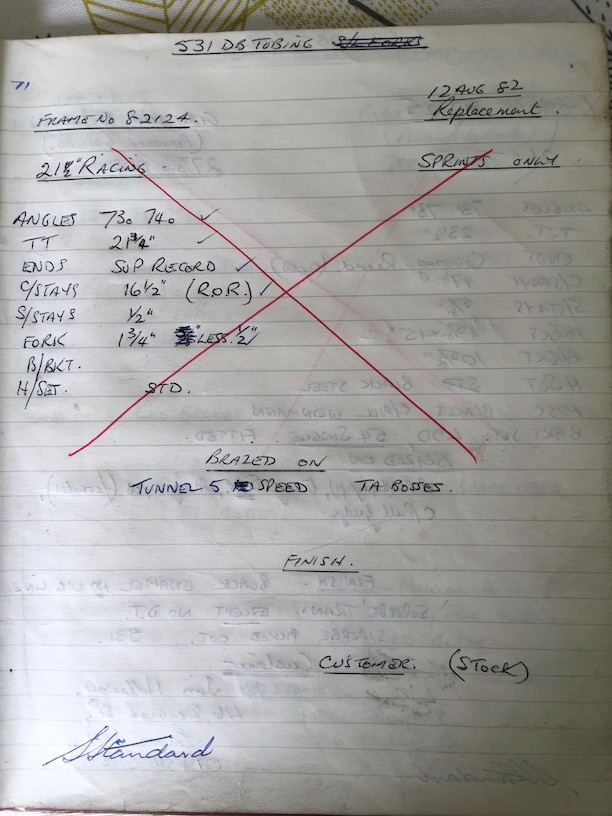 531 DB TUBING S/L FORKS
71
12 AUG 82
FRAME NO 82124.
Replacement.
21½" RACING
SPRINTS ONLY
ANGLES 73° 74° ✓
TT 21¾" ✓
ENDS SUP RECORD ✓
C/STAYS 16½" (R.O.R.) ✓
S/STAYS ½"
FORK 1¾" LESS ½" ✓
B/BKT.
H/SET. STD.
BRAZED ON
TUNNEL 5 SPEED TA BOSSES.
FINISH.
CUSTOMER. (STOCK)
S Standard